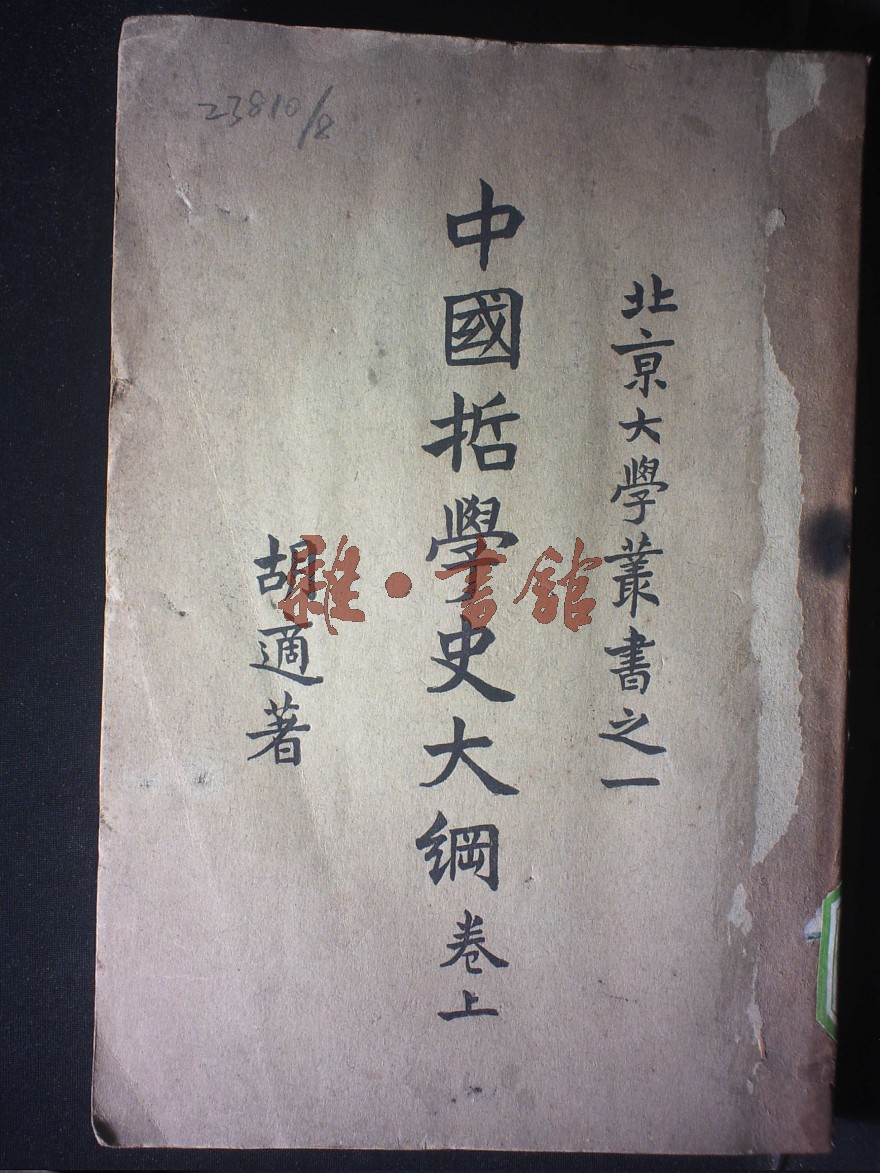 23810/8
北京大學叢書之一
中國哲學史大綱 卷上
胡適著
雜·書館